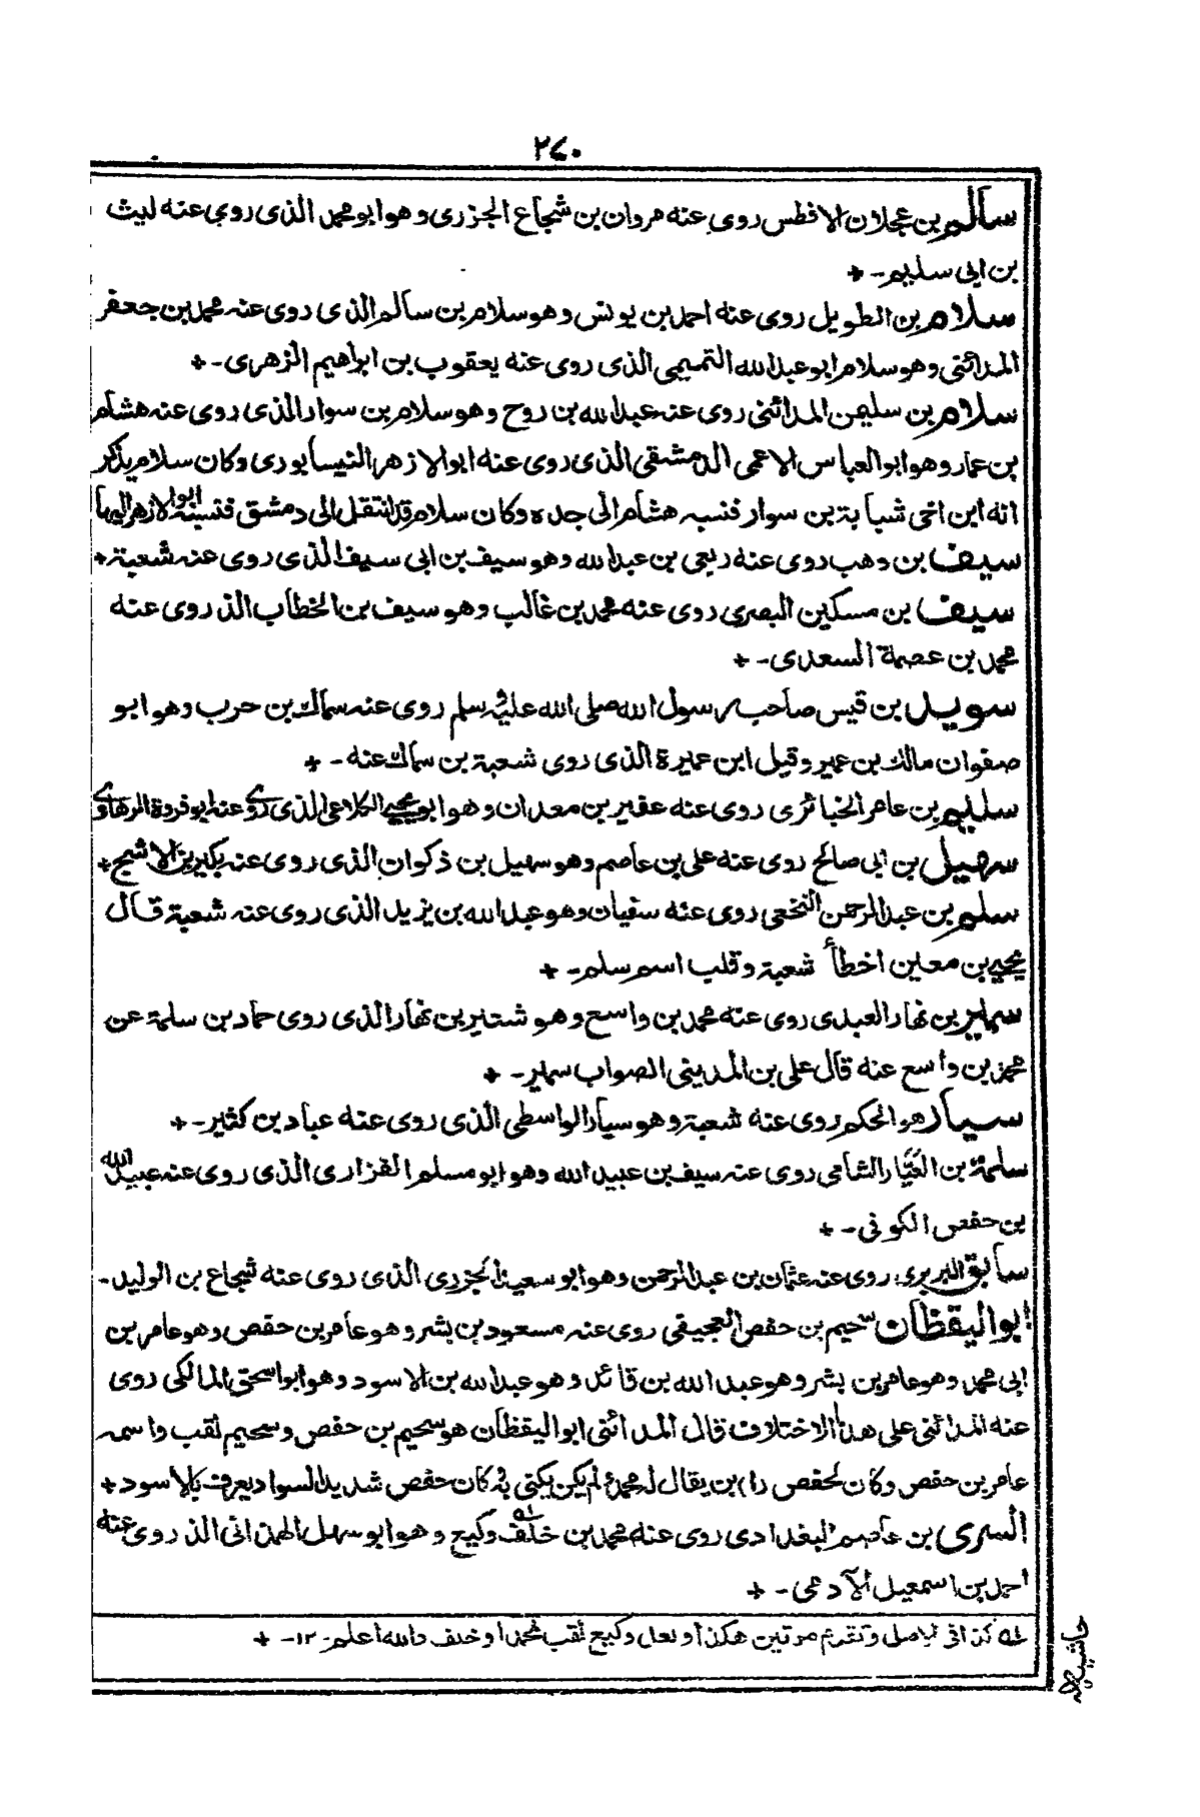 ٢٧٠
سالم بن عجلان الافطس روى عنه مروان بن شجاع الجزرى وهو ابو محمد الذى روى عنه ليث
بن ابى سليم ـ +
سلام بن الطويل روى عنه احمد بن يونس وهو سلام بن سالم الذى روى عنه محمد بن جعفر
المدائنى وهو سلام ابو عبد الله التميمى الذى روى عنه يعقوب بن ابراهيم الزهرى ـ +
سلام بن سليمن المدائنى روى عنه عبد الله بن روح وهو سلام بن سوار الذى روى عنه هشام
بن عمار وهو ابو العباس الاعمى الدمشقى الذى روى عنه ابو الازهر النيسابورى وكان سلام يذكر
انه ابن اخى شبابة بن سوار فنسبه هشام الى جده وكان سلام قد انتقل الى دمشق فنسبه ابو الازهر اليها
سيف بن وهب روى عنه ربعى بن عبد الله وهو سيف بن ابى سيف الذى روى عنه شعبة +
سيف بن مسكين البصرى روى عنه محمد بن غالب وهو سيف بن الخطاب الذ روى عنه
محمد بن عصمة السعدى ـ +
سويد بن قيس صاحب رسول الله صلى الله عليه وسلم روى عنه سماك بن حرب وهو ابو
صفوان مالك بن عمير وقيل ابن عميرة الذى روى شعبة بن سماك عنه ـ +
سليم بن عامر الخبائرى روى عنه عفير بن معدان وهو ابو يحيى الكلاعى الذى روى عنه ابو فروة الرهاوى
سهيل بن ابى صالح روى عنه على بن عاصم وهو سهيل بن ذكوان الذى روى عنه بكير بن الاشج +
سلم بن عبد الرحمن النخعى روى عنه سفيان وهو عبد الله بن يزيد الذى روى عنه شعبة قال
يحيى بن معين اخطأ شعبة وقلب اسم سلم ـ +
سمير بن نهار العبدى روى عنه محمد بن واسع وهو شتير بن نهار الذى روى حماد بن سلمة عن
محمد بن واسع عنه قال على بن المدينى الصواب سمير ـ +
سيار هو الحكم روى عنه شعبة وهو سيار الواسطى الذى روى عنه عباد بن كثير ـ +
سلمة بن العَيَّار الشامى روى عنه سيف بن عبيد الله وهو ابو مسلم الفزارى الذى روى عنه عبيد الله
بن حفص الكوفى ـ +
سابق البربرى روى عنه عثمان بن عبد الرحمن وهو ابو سعيد الجزرى الذى روى عنه شجاع بن الوليد ـ
ابو اليقظان سحيم بن حفص العجيفى روى عنه مسعود بن بشر وهو عامر بن حفص وهو عامر بن
ابى محمد وهو عامر بن بشر وهو عبد الله بن قائد وهو عبد الله بن الاسود وهو ابو اسحق المالكى روى
عنه المدائنى على هذا الاختلاف قال المدائنى ابو اليقظان هو سحيم بن حفص وسحيم لقب واسمه
عامر بن حفص وكان لحفص (ا) بن يقال له محمد لم يكن يكنى به كان حفص شديد السواد يعرف بالاسود +
السرى بن عاصم البغدادى روى عنه محمد بن خلف له وكيع وهو ابو سهل الهمذانى الذ روى عنه
احمد بن اسمعيل الآدمى ـ +
له كذا فى الاصل وتقدم مرتين هكذا ولعل وكيع لقب لمحمد او خلف والله اعلم ـ ١٢ ـ +
حاشيه